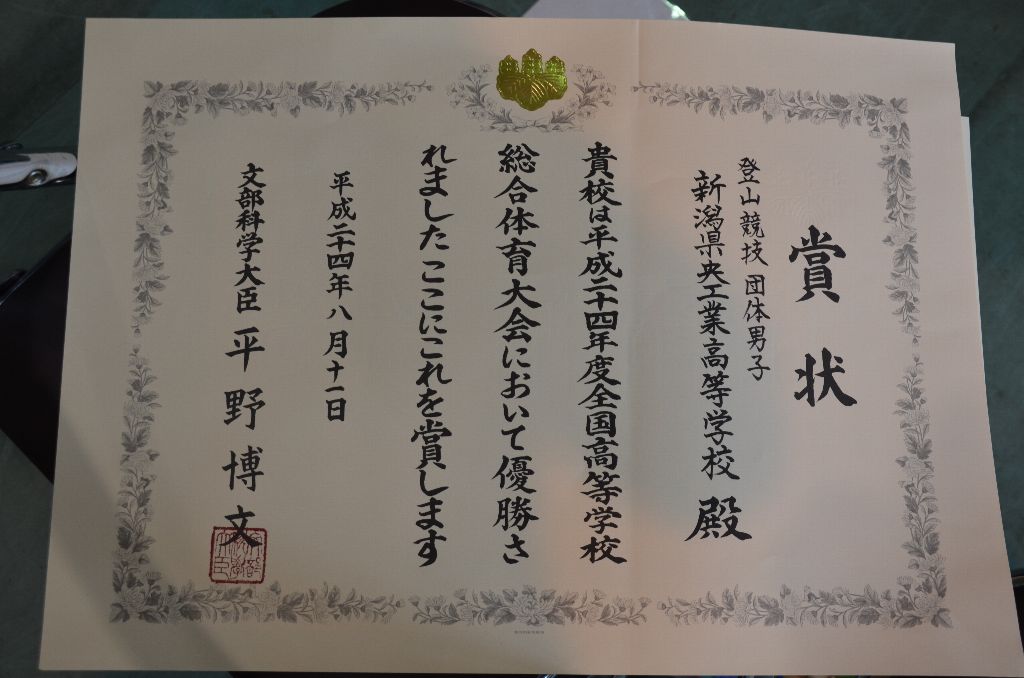 賞状
登山競技 団体男子
新潟県央工業高等学校 殿
貴校は平成二十四年度全国高等学校
総合体育大会において優勝さ
れましたここにこれを賞します
平成二十四年八月十一日
文部科学大臣 平野博文